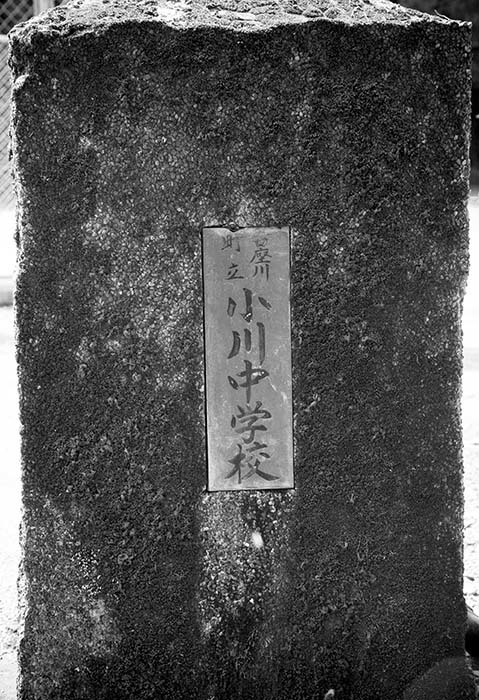 古座川
町立
小川中学校